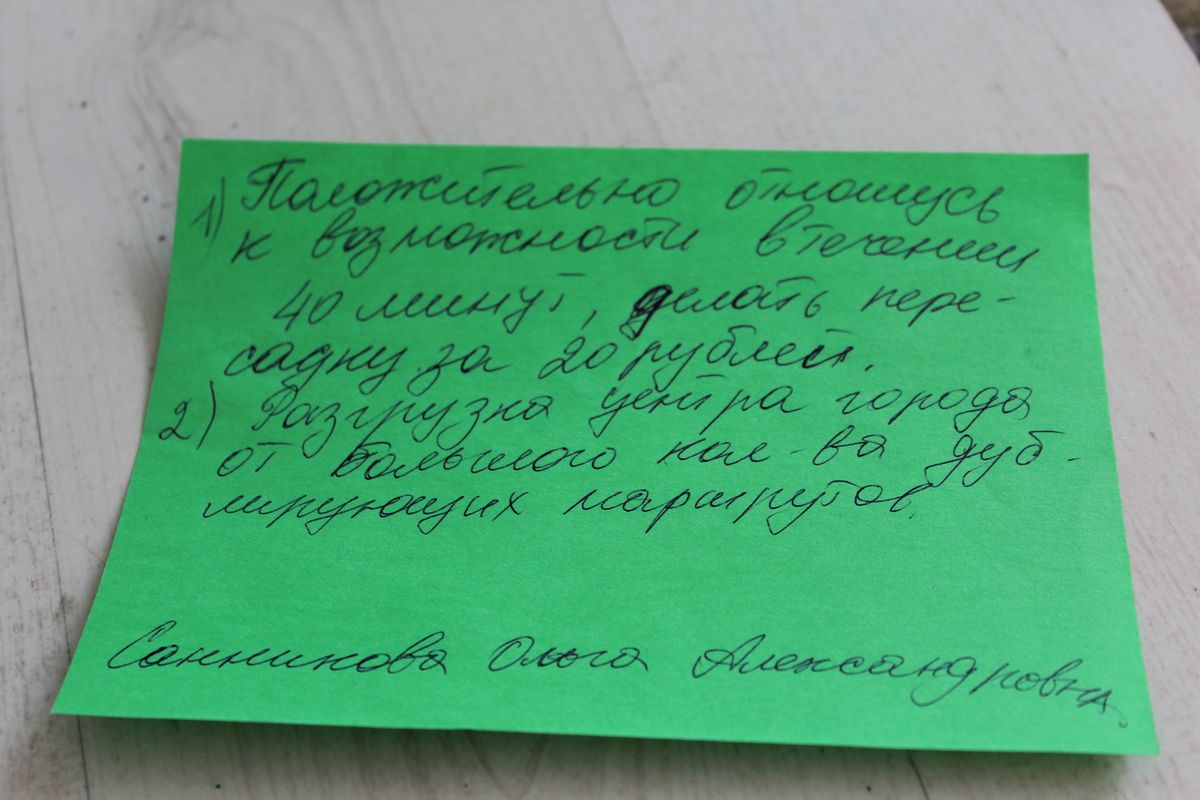 1) Положительно отношусь
к возможности в течении
40 минут, делать пере-
садку за 20 рублей.
2) Разгрузка центра города
от большого кол-ва дуб-
лирующих маршрутов.
Санникова Ольга Александровна